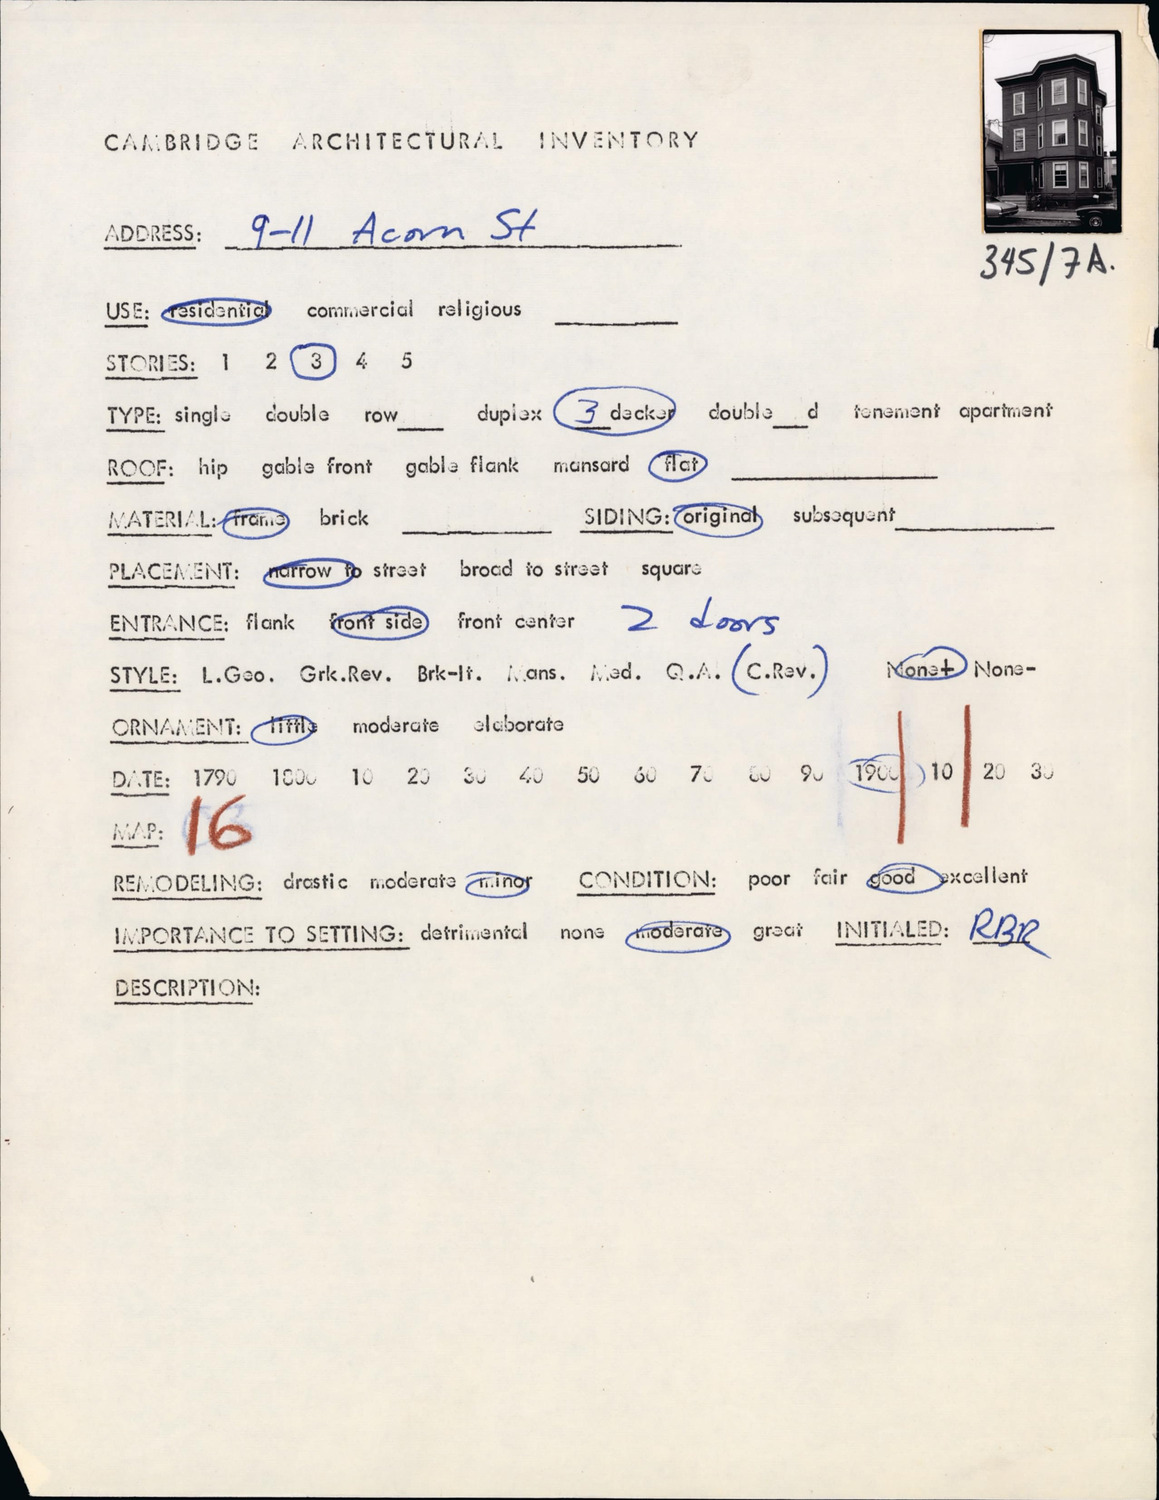 CAMBRIDGE ARCHITECTURAL INVENTORY
ADDRESS: 9-11 Acorn St
345/7A.
USE: residential commercial religious
STORIES: 1 2 3 4 5
TYPE: single double row___ duplex 3 decker double___d tenement apartment
ROOF: hip gable front gable flank mansard flat
MATERIAL: frame brick ___ SIDING: original subsequent
PLACEMENT: narrow to street broad to street square
ENTRANCE: flank front side front center 2 doors
STYLE: L.Geo. Grk.Rev. Brk-It. Mans. Med. Q.A. (C.Rev.) None+ None-
ORNAMENT: little moderate elaborate
DATE: 1790 1800 10 20 30 40 50 60 70 80 90 1900 10 20 30
MAP: 16
REMODELING: drastic moderate minor CONDITION: poor fair good excellent
IMPORTANCE TO SETTING: detrimental none moderate great INITIALED: RBR
DESCRIPTION: